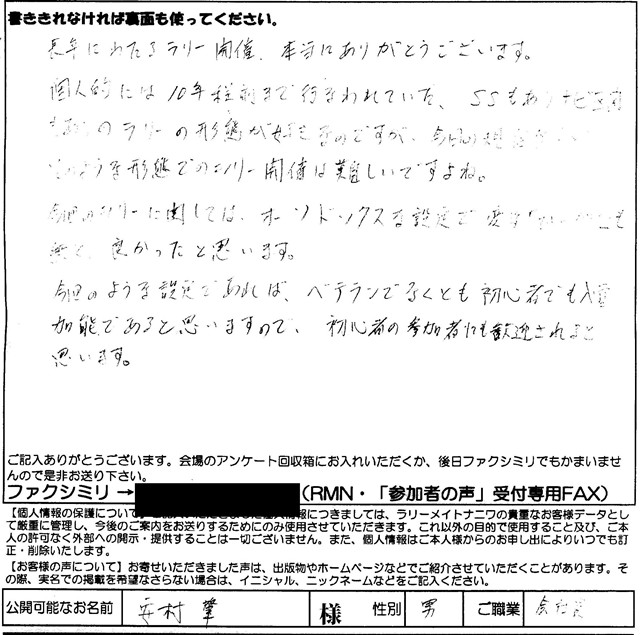 書ききれなければ裏面も使ってください。
長年にわたるラリー開催、本当にありがとうございます。
個人的には10年程前まで行なわれていた、SSもあり
のラリーの形態が好きなのですが、今回の
そのような形態でのラリー開催は難しいですよね。
今回のラリーに関しては、オーソドックスな設定で
無く、良かったと思います。
今回のような設定であれば、ベテランでなくとも初心者でも入賞
可能であると思いますので、初心者の参加者にも歓迎されると
思います。
ご記入ありがとうございます。会場のアンケート回収箱にお入れいただくか、後日ファクシミリでもかまいませ
んので是非お送り下さい。
ファクシミリ→ (RMN・「参加者の声」受付専用FAX)
【個人情報の保護について】 につきましては、ラリーメイトナニワの貴重なお客様データとし
て厳重に管理し、今後のご案内をお送りするためにのみ使用させていただきます。これ以外の目的で使用すること及び、ご本
人の許可なく外部への開示・提供することは一切ございません。また、個人情報はご本人様からのお申し出によりいつでも訂
正・削除いたします。
【お客様の声について】お寄せいただきました声は、出版物やホームページなどでご紹介させていただくことがあります。そ
の際、実名での掲載を希望なさらない場合は、イニシャル、ニックネームなどをご記入ください。
公開可能なお名前 安村 肇 様 性別 男 ご職業 会社員